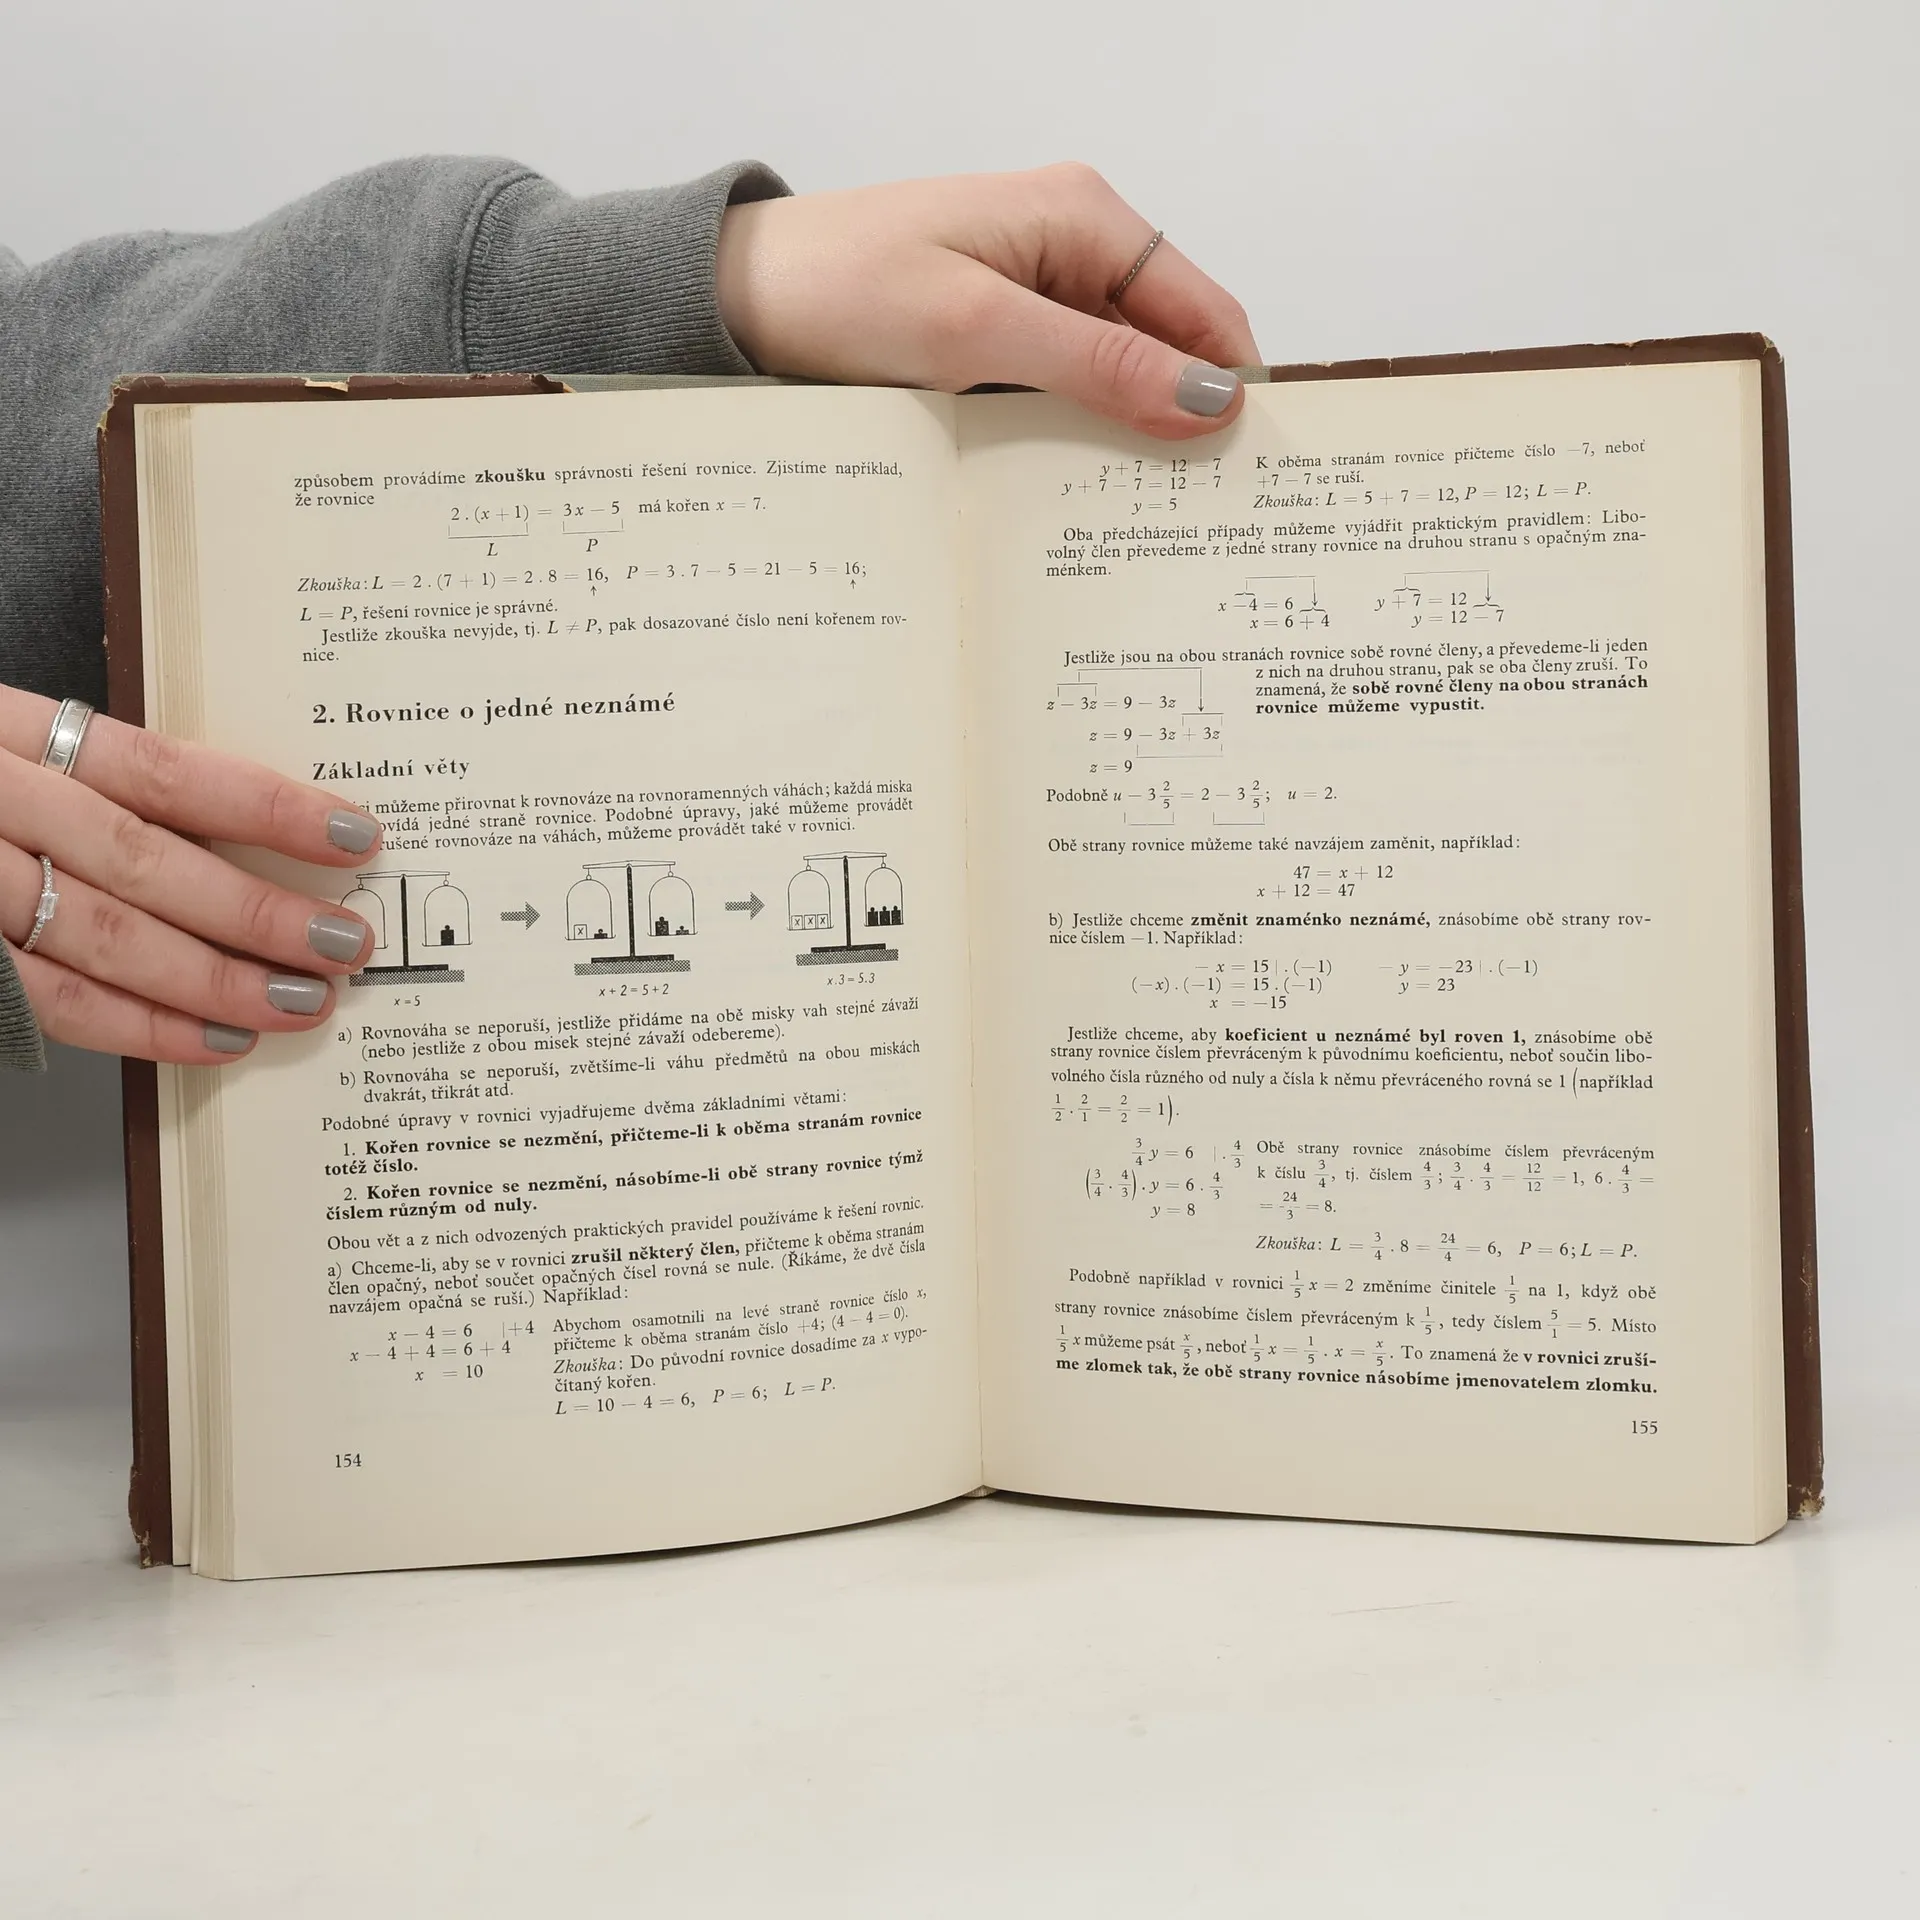 způsobem provádíme zkoušku správnosti řešení rovnice. Zjistíme například,
že rovnice
2 . (x + 1) = 3x − 5 má kořen x = 7.
L P
Zkouška: L = 2 . (7 + 1) = 2 . 8 = 16, P = 3 . 7 − 5 = 21 − 5 = 16;
L = P, řešení rovnice je správné.
Jestliže zkouška nevyjde, tj. L ≠ P, pak dosazované číslo není kořenem rov-
nice.
2. Rovnice o jedné neznámé
Základní věty
můžeme přirovnat k rovnováze na rovnoramenných váhách; každá miska
jedné straně rovnice. Podobné úpravy, jaké můžeme provádět
rovnováze na váhách, můžeme provádět také v rovnici.
x = 5
x + 2 = 5 + 2
x . 3 = 5 . 3
a) Rovnováha se neporuší, jestliže přidáme na obě misky vah stejné závaží
(nebo jestliže z obou misek stejné závaží odebereme).
b) Rovnováha se neporuší, zvětšíme-li váhu předmětů na obou miskách
dvakrát, třikrát atd.
Podobné úpravy v rovnici vyjadřujeme dvěma základními větami:
1. Kořen rovnice se nezmění, přičteme-li k oběma stranám rovnice
totéž číslo.
2. Kořen rovnice se nezmění, násobíme-li obě strany rovnice týmž
číslem různým od nuly.
Obou vět a z nich odvozených praktických pravidel používáme k řešení rovnic.
a) Chceme-li, aby se v rovnici zrušil některý člen, přičteme k oběma stranám
člen opačný, neboť součet opačných čísel rovná se nule. (Říkáme, že dvě čísla
navzájem opačná se ruší.) Například:
x − 4 = 6 |+4
x − 4 + 4 = 6 + 4
x = 10
Abychom osamotnili na levé straně rovnice číslo x,
přičteme k oběma stranám číslo +4; (4 − 4 = 0).
Zkouška: Do původní rovnice dosadíme za x vypo-
čítaný kořen.
L = 10 − 4 = 6, P = 6; L = P.
154
y + 7 = 12 − 7
y + 7 − 7 = 12 − 7
y = 5
K oběma stranám rovnice přičteme číslo −7, neboť
+7 − 7 se ruší.
Zkouška: L = 5 + 7 = 12, P = 12; L = P.
Oba předcházející případy můžeme vyjádřit praktickým pravidlem: Libo-
volný člen převedeme z jedné strany rovnice na druhou stranu s opačným zna-
ménkem.
x − 4 = 6 y + 7 = 12
x = 6 + 4 y = 12 − 7
Jestliže jsou na obou stranách rovnice sobě rovné členy, a převedeme-li jeden
z nich na druhou stranu, pak se oba členy zruší. To
znamená, že sobě rovné členy na obou stranách
rovnice můžeme vypustit.
z − 3z = 9 − 3z
z = 9 − 3z + 3z
z = 9
Podobně u − 3 2/5 = 2 − 3 2/5; u = 2.
Obě strany rovnice můžeme také navzájem zaměnit, například:
47 = x + 12
x + 12 = 47
b) Jestliže chceme změnit znaménko neznámé, znásobíme obě strany rov-
nice číslem −1. Například:
− x = 15 | . (−1) − y = −23 | . (−1)
(−x) . (−1) = 15 . (−1) y = 23
x = −15
Jestliže chceme, aby koeficient u neznámé byl roven 1, znásobíme obě
strany rovnice číslem převráceným k původnímu koeficientu, neboť součin libo-
volného čísla různého od nuly a čísla k němu převráceného rovná se 1 (například
1/2 . 2/1 = 2/2 = 1).
3/4 y = 6 | . 4/3
(3/4 . 4/3) . y = 6 . 4/3
y = 8
Obě strany rovnice znásobíme číslem převráceným
k číslu 3/4, tj. číslem 4/3; 3/4 . 4/3 = 12/12 = 1, 6 . 4/3 =
= 24/3 = 8.
Zkouška: L = 3/4 . 8 = 24/4 = 6, P = 6; L = P.
Podobně například v rovnici 1/5 x = 2 změníme činitele 1/5 na 1, když obě
strany rovnice znásobíme číslem převráceným k 1/5, tedy číslem 5/1 = 5. Místo
1/5 x můžeme psát x/5, neboť 1/5 x = 1/5 . x = x/5. To znamená že v rovnici zruší-
me zlomek tak, že obě strany rovnice násobíme jmenovatelem zlomku.
155